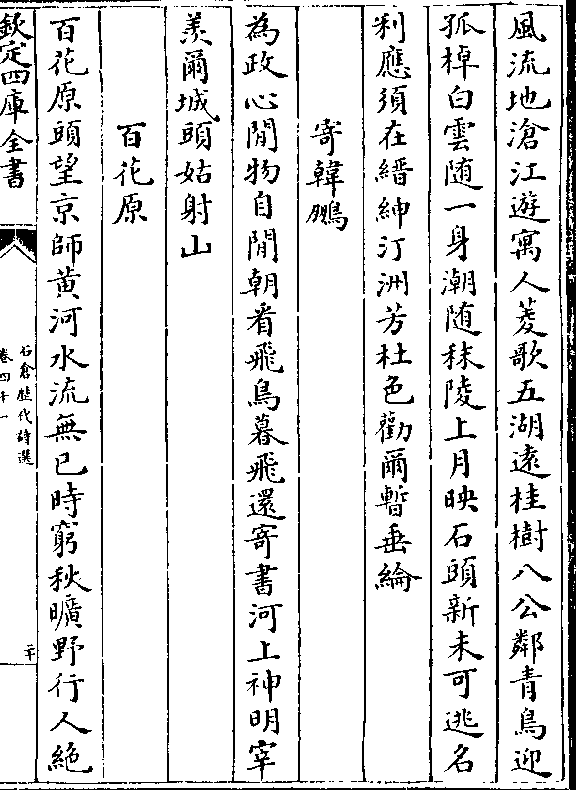 風流地滄江遊寓人菱歌五湖遠桂樹八公鄰青鳥迎
孤棹白雲随一身潮随秣陵上月映石頭新未可逃名
利應須在縉紳汀洲芳杜色勸爾暫垂綸
寄韓鵬
為政心閒物自閒朝看飛鳥暮飛還寄書河上神明宰
羨爾城頭姑射山
百花原
百花原頭望京師黄河水流無已時窮秋曠野行人絶
欽定四庫全書
石倉歷代詩選
卷四十一
二十